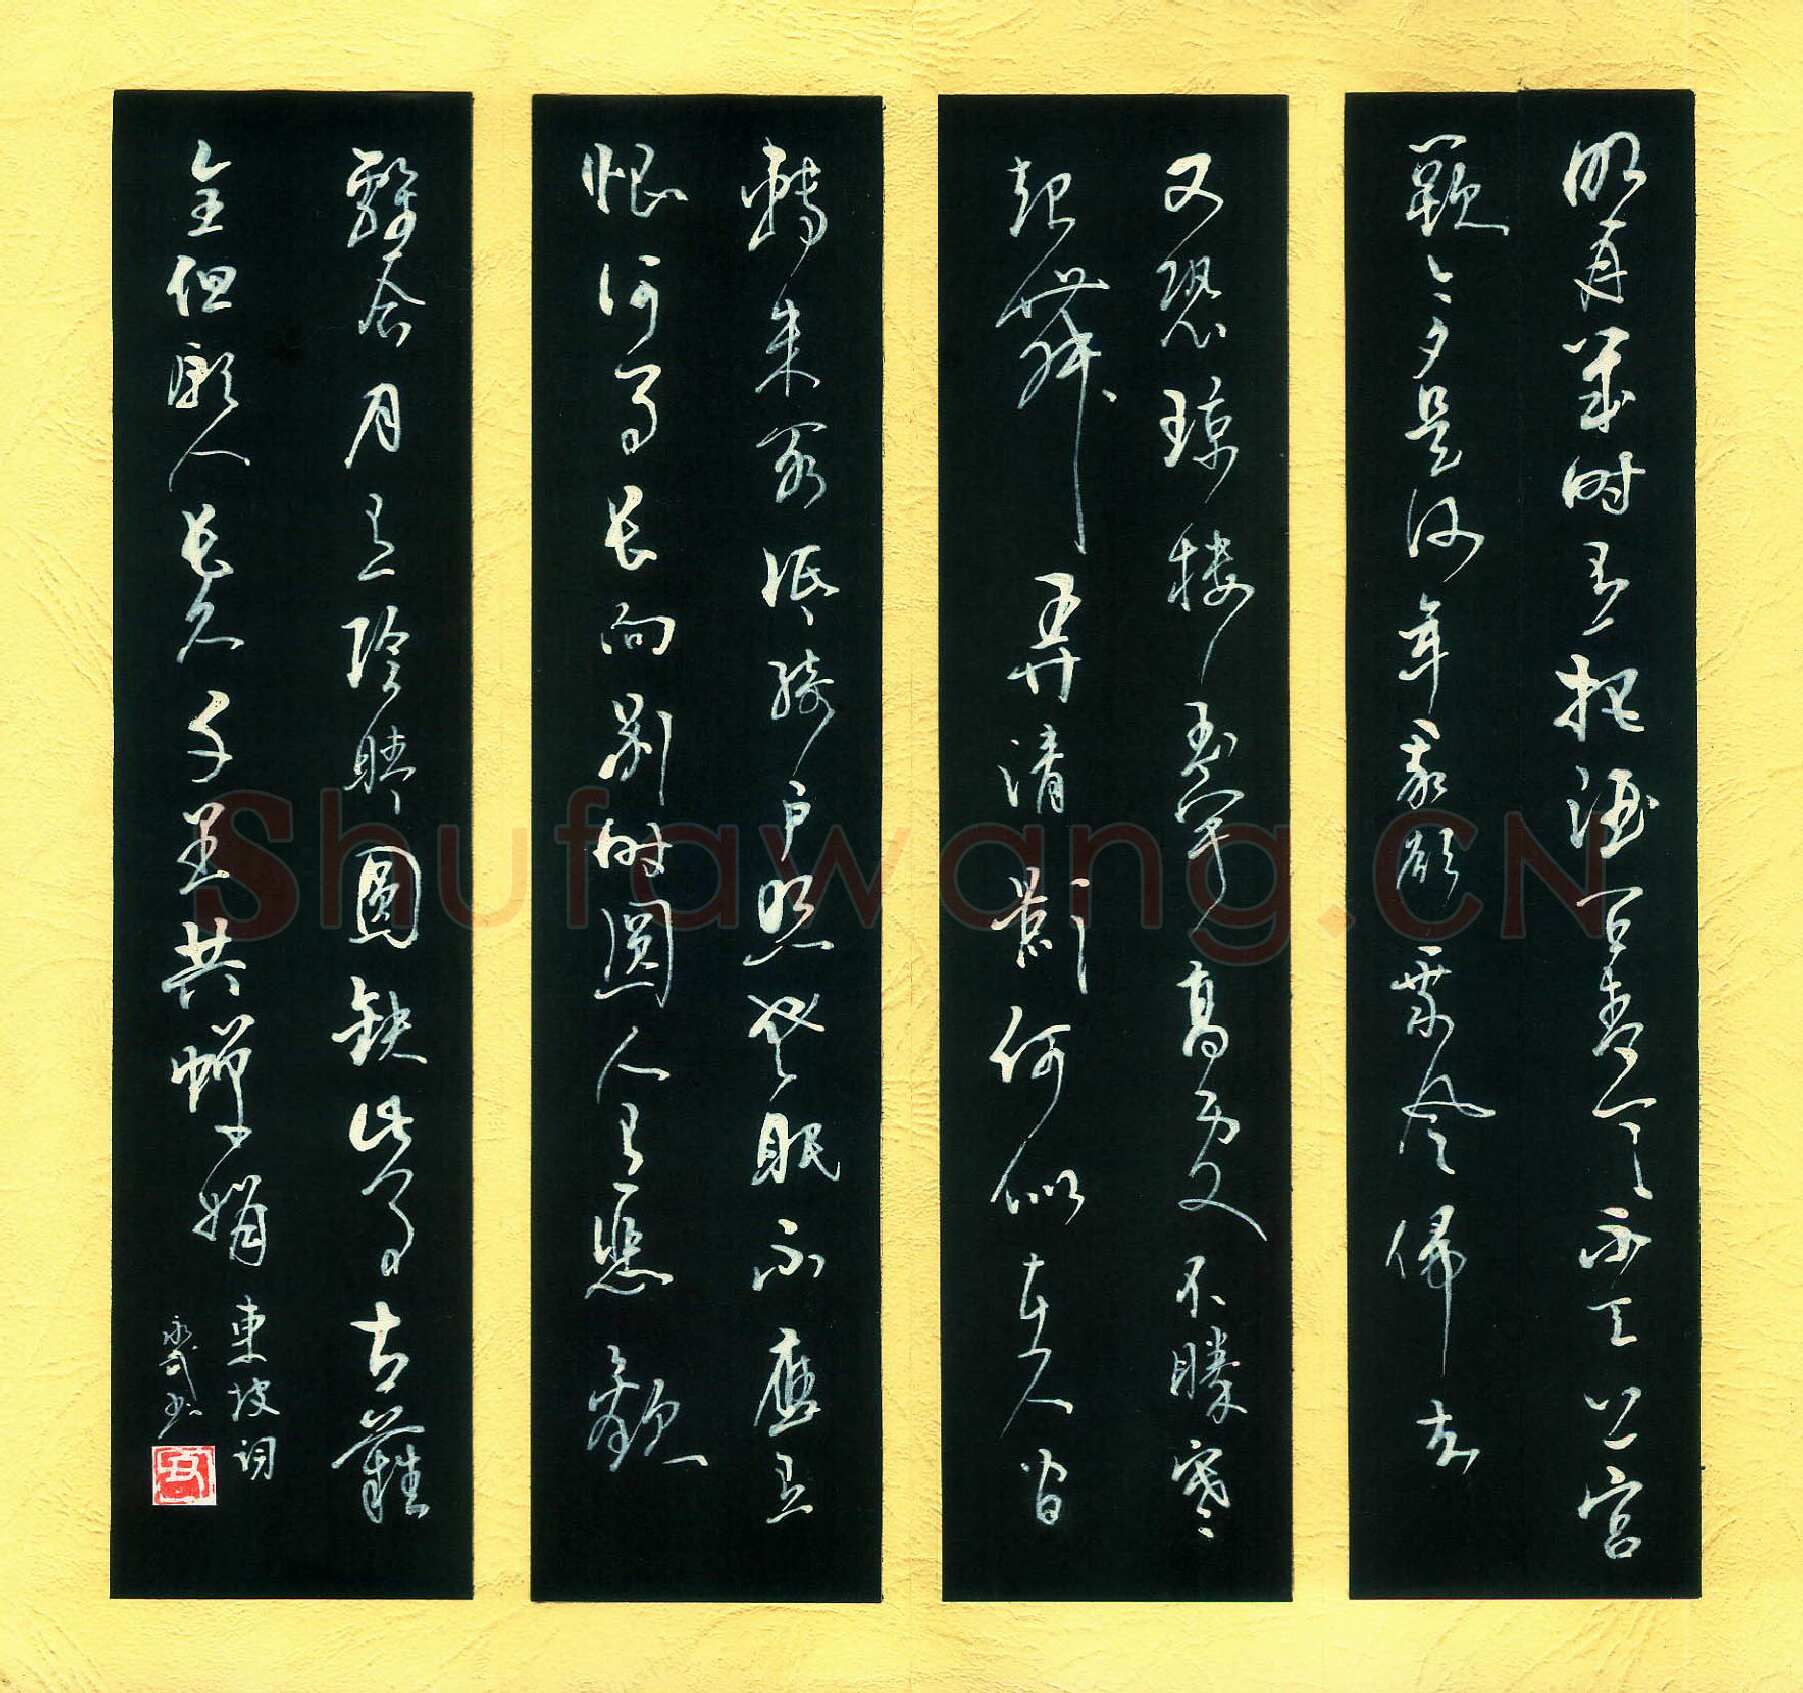 明月幾时有把酒问青天不知天上宫
闕今夕是何年我欲乘风歸去
又恐琼楼玉宇高處不勝寒
起舞弄清影何似在人间
轉朱阁低绮户照無眠不應有
恨何事长向别时圆人有悲歡
離合月有陰晴圓缺此事古難
全但願人长久千里共嬋娟
東坡词
Shufawang.CN